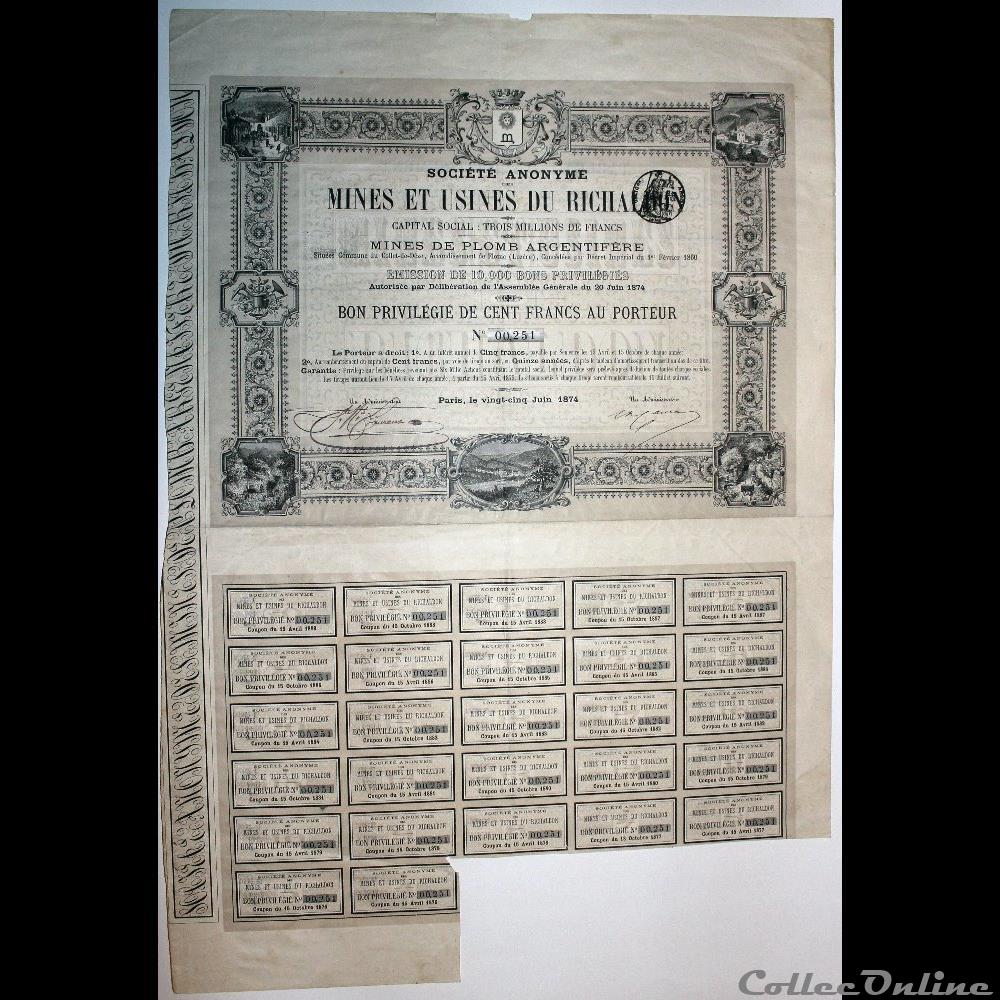 SOCIÉTÉ ANONYME
DES
MINES ET USINES DU RICHALDON
CAPITAL SOCIAL : TROIS MILLIONS DE FRANCS
MINES DE PLOMB ARGENTIFÈRE
Situées Commune du Collet-de-Dèze, Arrondissement de Florac (Lozère), Concédées par Décret Impérial du 1er Février 1860
EMISSION DE 10,000 BONS PRIVILÉGIÉS
Autorisée par Délibération de l'Assemblée Générale du 20 Juin 1874
BON PRIVILÉGIÉ DE CENT FRANCS AU PORTEUR
No 00,251
Le Porteur a droit : 1o. A un intérêt annuel de Cinq francs, payable par Semestre les 15 Avril et 15 Octobre de chaque année;
2o. Au remboursement du capital de Cent francs, par voie de tirage au sort, en Quinze années, d'après le tableau d'amortissement
Garantie : Privilège sur les bénéfices revenant aux Six Mille Actions constituant le capital social,
Les tirages auront lieu le 15 Avril de chaque année, à partir du 15 Avril 1875.
Un Administrateur Paris, le vingt-cinq Juin 1874 Un Administrateur
SOCIÉTÉ ANONYME SOCIÉTÉ ANONYME SOCIÉTÉ ANONYME SOCIÉTÉ ANONYME SOCIÉTÉ ANONYME
MINES ET USINES DU RICHALDON MINES ET USINES DU RICHALDON MINES ET USINES DU RICHALDON MINES ET USINES DU RICHALDON MINES ET USINES DU RICHALDON
BON PRIVILÉGIÉ No 00,251 BON PRIVILÉGIÉ No 00,251 BON PRIVILÉGIÉ No 00,251 BON PRIVILÉGIÉ No 00,251 BON PRIVILÉGIÉ No 00,251
Coupon du 15 Avril Coupon du 15 Octobre Coupon du 15 Avril Coupon du 15 Octobre 1887 Coupon du 15 Avril 1887
SOCIÉTÉ ANONYME SOCIÉTÉ ANONYME SOCIÉTÉ ANONYME SOCIÉTÉ ANONYME SOCIÉTÉ ANONYME
MINES ET USINES DU RICHALDON MINES ET USINES DU RICHALDON MINES ET USINES DU RICHALDON MINES ET USINES DU RICHALDON MINES ET USINES DU RICHALDON
BON PRIVILÉGIÉ No 00,251 BON PRIVILÉGIÉ No 00,251 BON PRIVILÉGIÉ No 00,251 BON PRIVILÉGIÉ No 00,251 BON PRIVILÉGIÉ No 00,251
Coupon du 15 Octobre 1886 Coupon du 15 Avril 1886 Coupon du 15 Octobre 1885 Coupon du 15 Avril 1885 Coupon du 15 Octobre 1884
SOCIÉTÉ ANONYME SOCIÉTÉ ANONYME SOCIÉTÉ ANONYME SOCIÉTÉ ANONYME SOCIÉTÉ ANONYME
MINES ET USINES DU RICHALDON MINES ET USINES DU RICHALDON MINES ET USINES DU RICHALDON MINES ET USINES DU RICHALDON MINES ET USINES DU RICHALDON
BON PRIVILÉGIÉ No 00,251 BON PRIVILÉGIÉ No 00,251 BON PRIVILÉGIÉ No 00,251 BON PRIVILÉGIÉ No 00,251 BON PRIVILÉGIÉ No 00,251
Coupon du 15 Avril 1884 Coupon du 15 Octobre 1883 Coupon du 15 Avril 1883 Coupon du 15 Octobre 1882 Coupon du 15 Avril 1882
SOCIÉTÉ ANONYME SOCIÉTÉ ANONYME SOCIÉTÉ ANONYME SOCIÉTÉ ANONYME SOCIÉTÉ ANONYME
MINES ET USINES DU RICHALDON MINES ET USINES DU RICHALDON MINES ET USINES DU RICHALDON MINES ET USINES DU RICHALDON MINES ET USINES DU RICHALDON
BON PRIVILÉGIÉ No 00,251 BON PRIVILÉGIÉ No 00,251 BON PRIVILÉGIÉ No 00,251 BON PRIVILÉGIÉ No 00,251 BON PRIVILÉGIÉ No 00,251
Coupon du 15 Octobre 1881 Coupon du 15 Avril 1881 Coupon du 15 Octobre 1880 Coupon du 15 Avril 1880 Coupon du 15 Octobre 1879
SOCIÉTÉ ANONYME SOCIÉTÉ ANONYME SOCIÉTÉ ANONYME SOCIÉTÉ ANONYME SOCIÉTÉ ANONYME
MINES ET USINES DU RICHALDON MINES ET USINES DU RICHALDON MINES ET USINES DU RICHALDON MINES ET USINES DU RICHALDON MINES ET USINES DU RICHALDON
BON PRIVILÉGIÉ No 00,251 BON PRIVILÉGIÉ No 00,251 BON PRIVILÉGIÉ No 00,251 BON PRIVILÉGIÉ No 00,251 BON PRIVILÉGIÉ No 00,251
Coupon du 15 Avril 1879 Coupon du 15 Octobre 1878 Coupon du 15 Avril 1878 Coupon du 15 Octobre 1877 Coupon du 15 Avril 1877
SOCIÉTÉ ANONYME SOCIÉTÉ ANONYME
MINES ET USINES DU RICHALDON MINES ET USINES DU RICHALDON
BON PRIVILÉGIÉ No 00,251 BON PRIVILÉGIÉ No 00,251
Coupon du 15 Octobre 1876 Coupon du 15 Avril 1876
CollecOnline